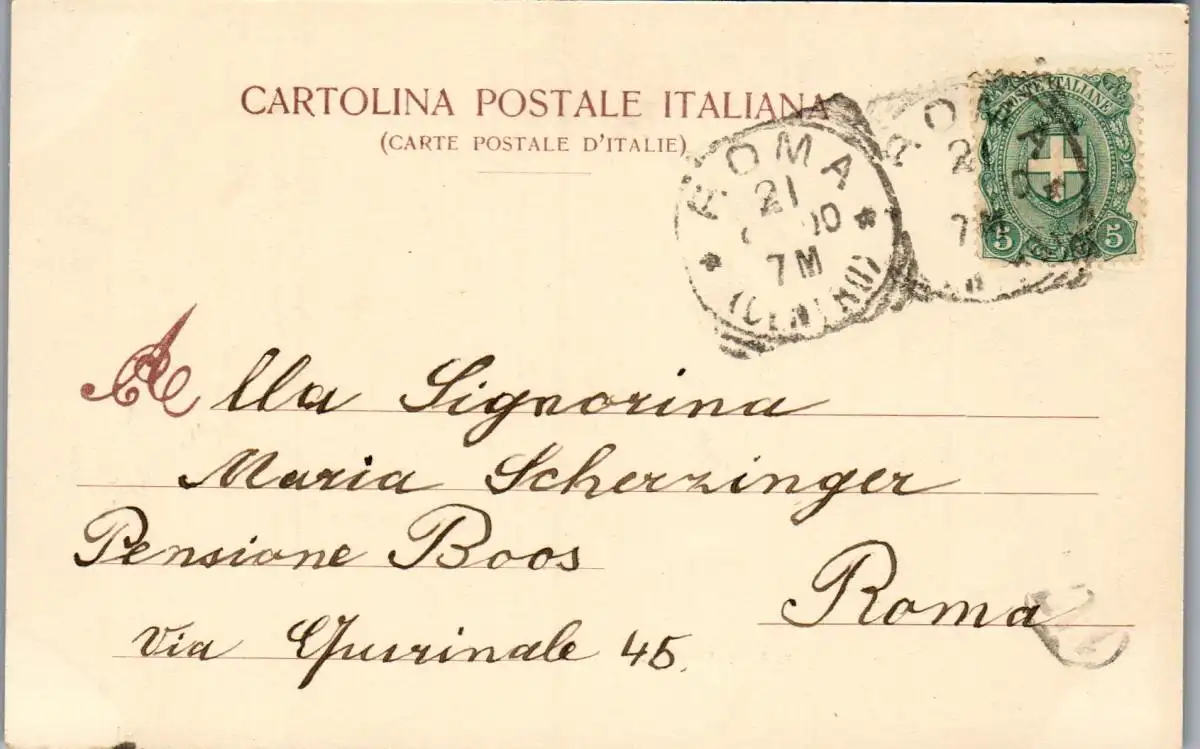 CARTOLINA POSTALE ITALIANA
(CARTE POSTALE D'ITALIE)
POSTE ITALIANE
5 5
ROMA
21
00
7 M
(CENTRO)
ROMA
2
7 M
Alla Signorina
Maria Scherzinger
Pensione Boos
Roma
Via Quirinale 45.